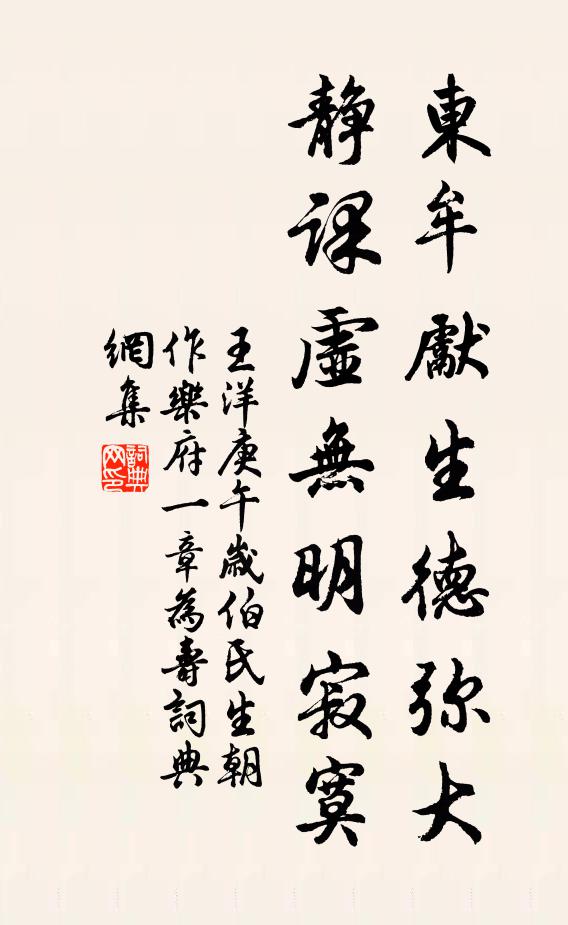 東牟獻生德弥大
静課虛無明寂寞
王洋庚午歲伯氏生朝
作樂府一章為壽詞典
網集
詞典网印